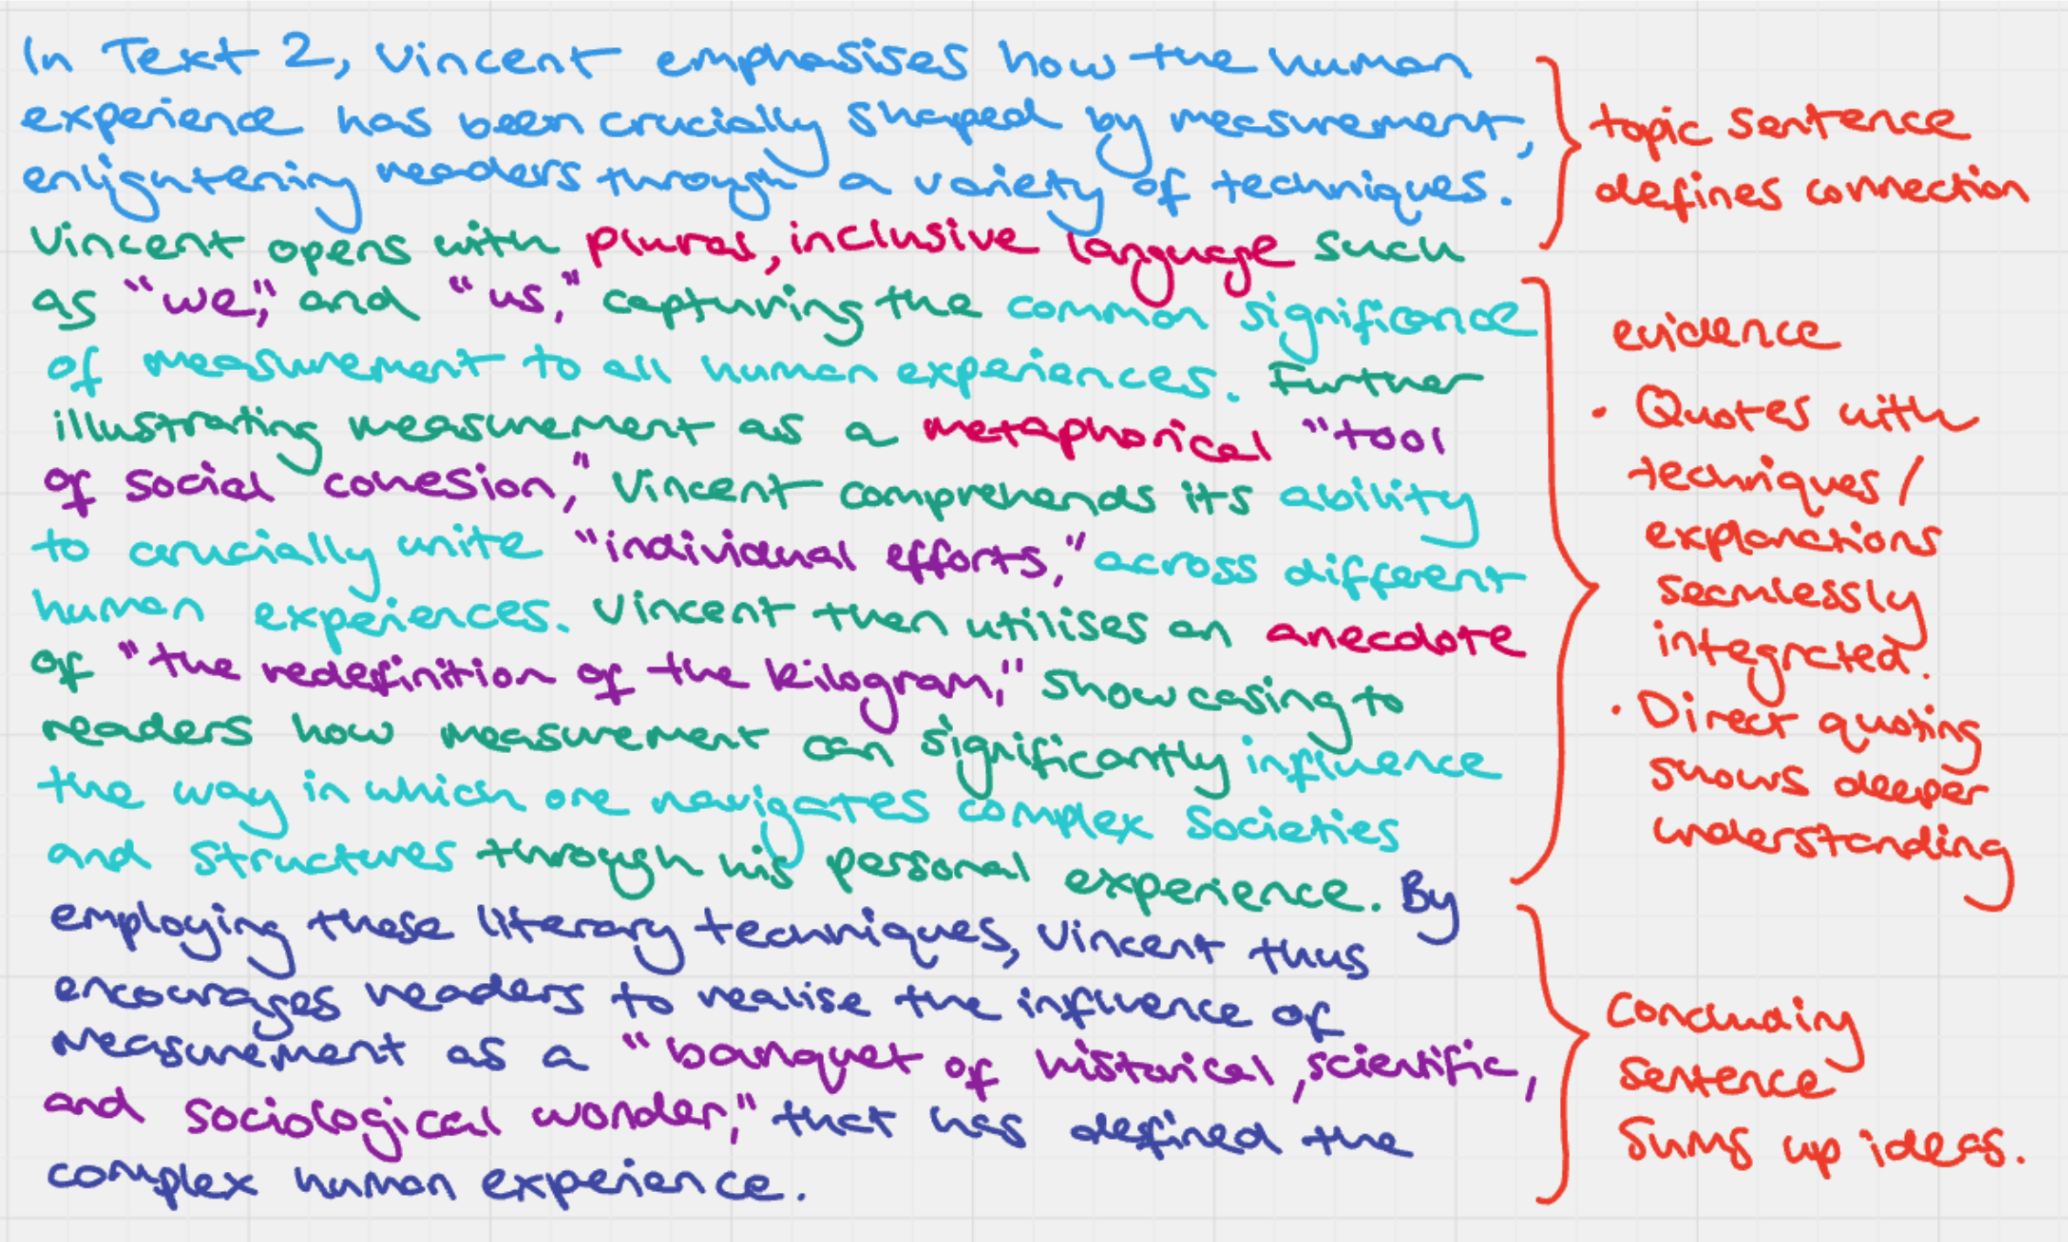 In Text 2, Vincent emphasises how the human
experience has been crucially shaped by measurement,
enlightening readers through a variety of techniques.
Vincent opens with plural, inclusive language such
as "we," and "us," capturing the common significance
of measurement to all human experiences. Further
illustrating measurement as a metaphorical "tool
of social cohesion," Vincent comprehends its ability
to crucially unite "individual efforts," across different
human experiences. Vincent then utilises an anecdote
of "the redefinition of the kilogram," showcasing to
readers how measurement can significantly influence
the way in which one navigates complex societies
and structures through his personal experience. By
employing these literary techniques, Vincent thus
encourages readers to realise the influence of
measurement as a "banquet of historical, scientific,
and sociological wonder," that has defined the
complex human experience.
topic sentence
defines connection
evidence
• Quotes with
techniques /
explanations
seamlessly
integrated.
• Direct quoting
shows deeper
understanding
Concluding
sentence
sums up ideas.